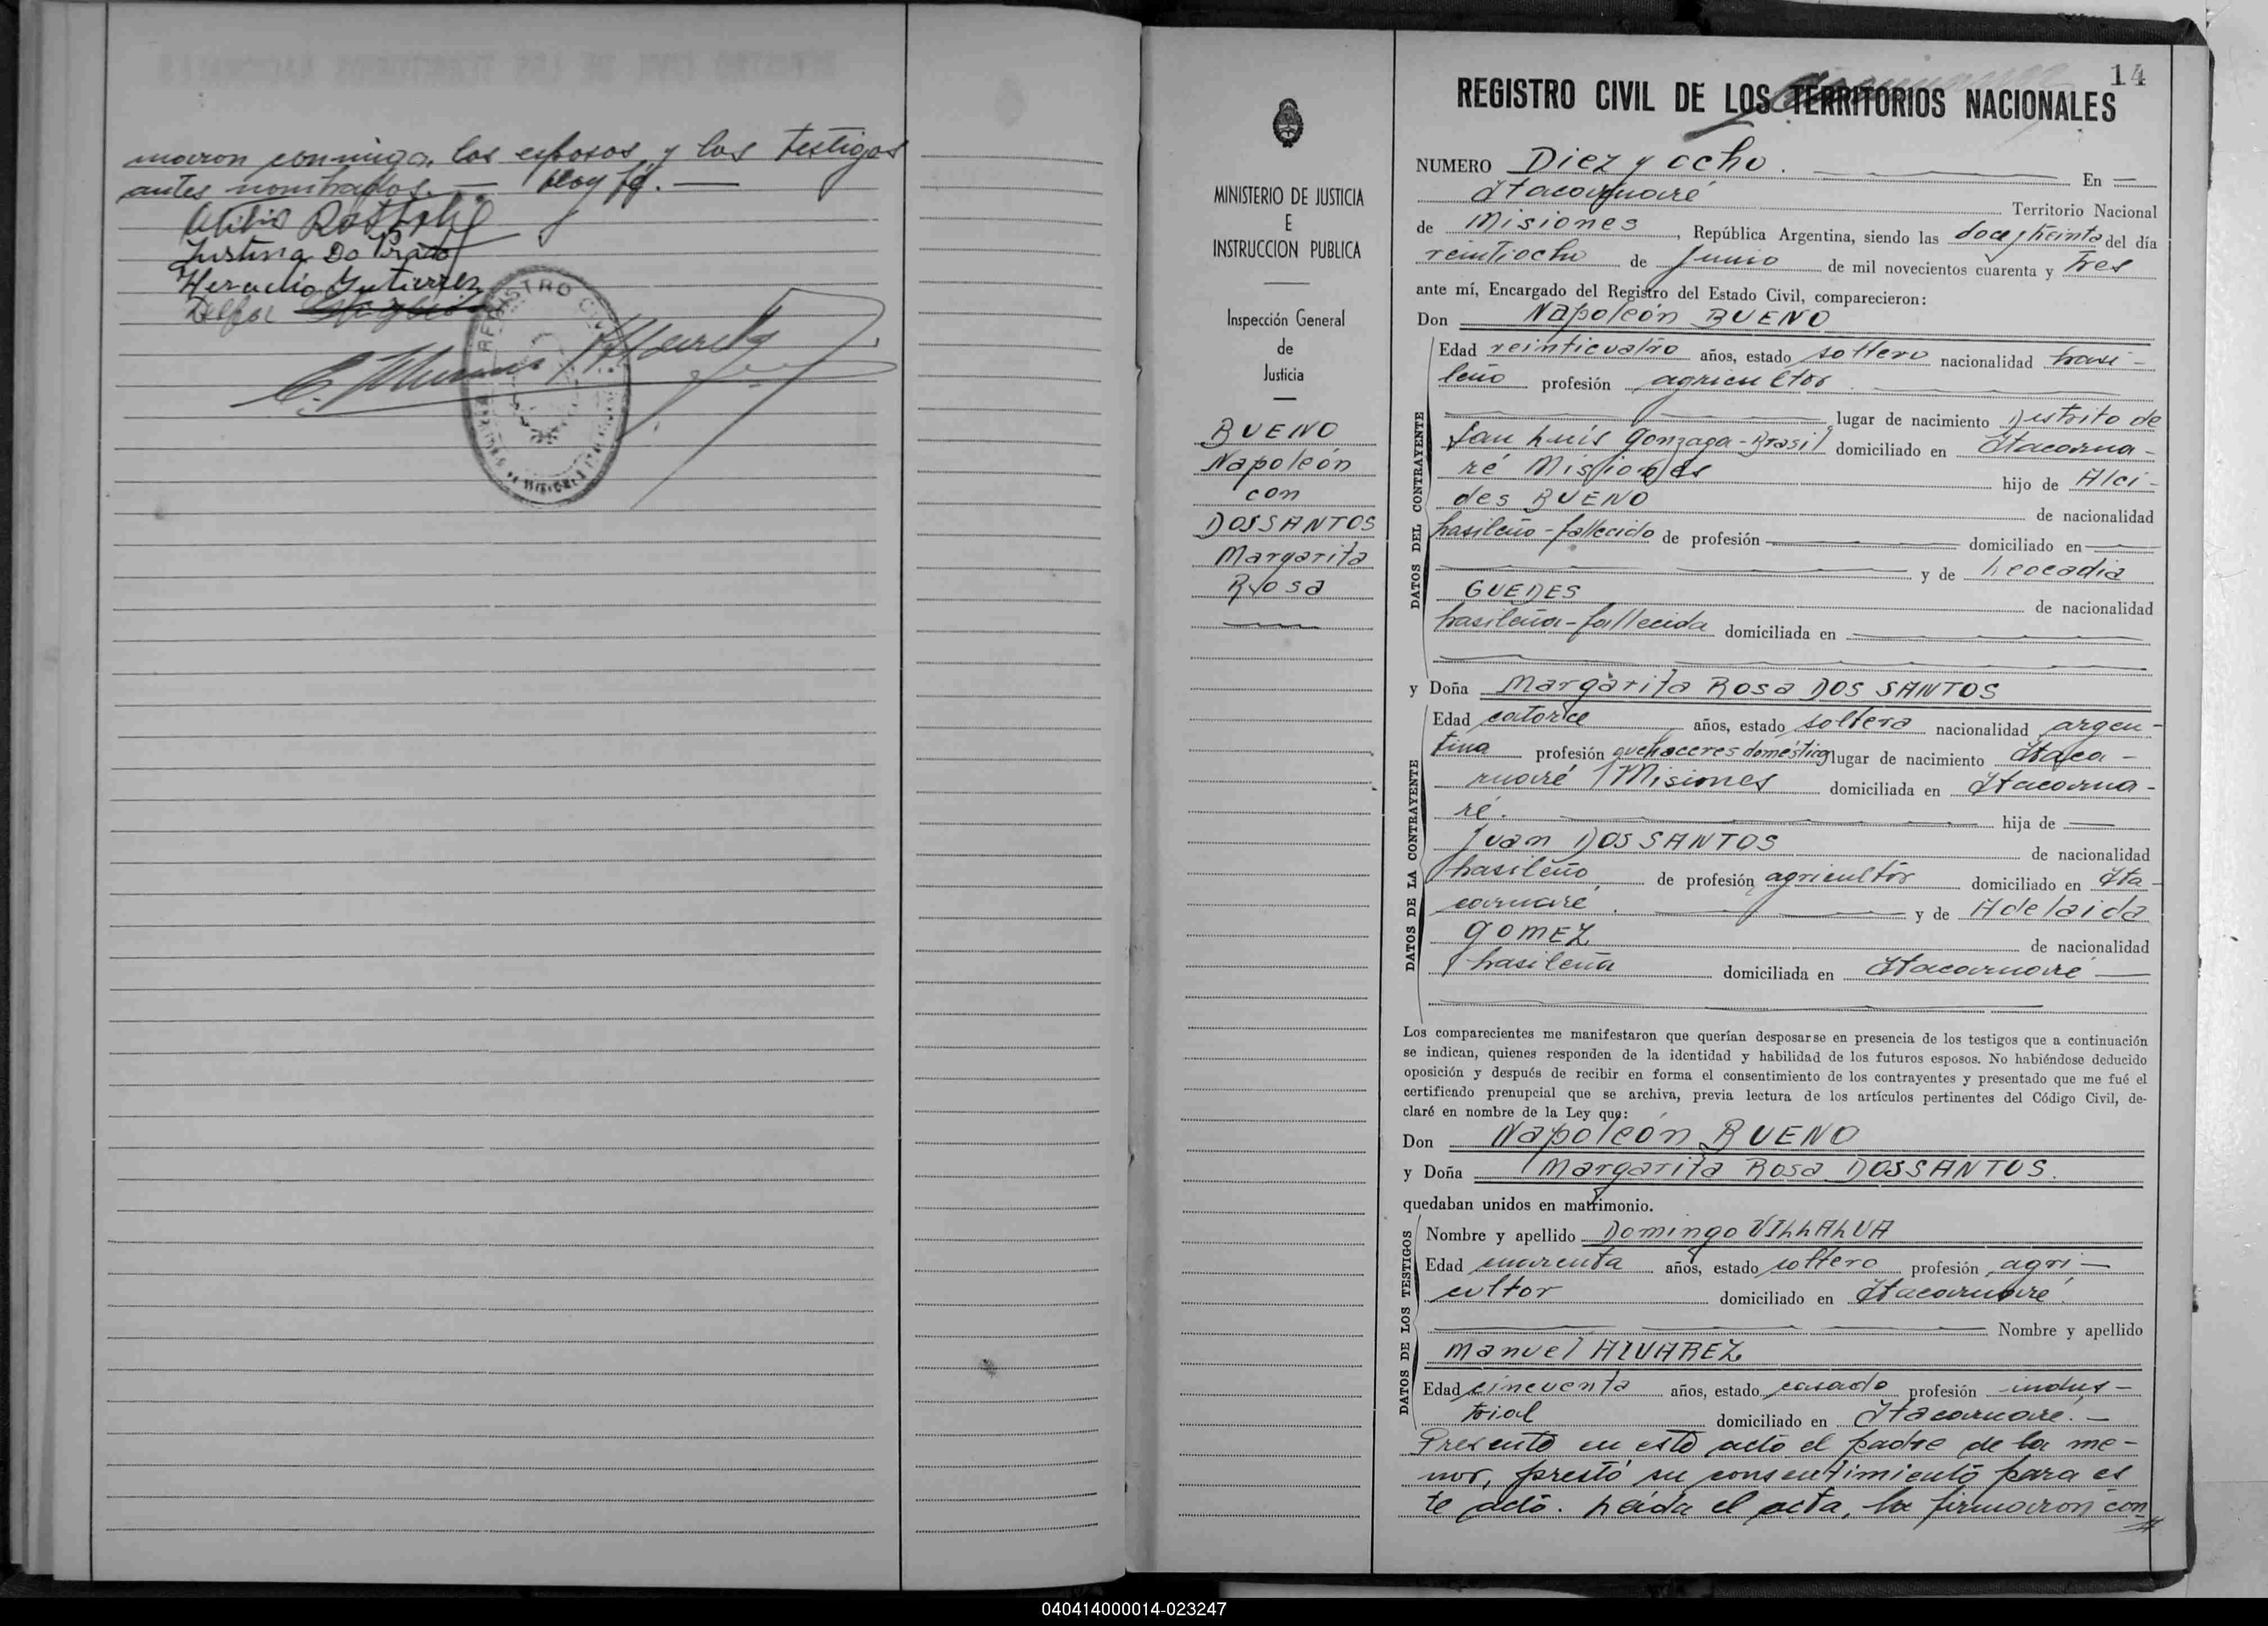 maron conmigo, los esposos, y los testigos
antes nombrados. — Doy fé. —
Justina Do Prado
Heraclio Gutierrez
Delfor
REGISTRO CIVIL
14
REGISTRO CIVIL DE LOS TERRITORIOS NACIONALES
MINISTERIO DE JUSTICIA
E
INSTRUCCION PUBLICA
Inspección General
de
Justicia
BUENO
Napoleón
con
DOSSANTOS
Margarita
Rosa
NUMERO Diez y ocho. En
Itacaruaré Territorio Nacional
de Misiones, República Argentina, siendo las doce y treinta del día
veintiocho de Junio de mil novecientos cuarenta y tres
ante mí, Encargado del Registro del Estado Civil, comparecieron:
Don Napoleón BUENO
DATOS DEL CONTRAYENTE
Edad veinticuatro años, estado soltero nacionalidad brasi-
leño profesión agricultor
lugar de nacimiento Distrito de
San Luís Gonzaga - Brasil domiciliado en Itacarua-
ré Misiones hijo de Alci-
des BUENO de nacionalidad
brasileño - fallecido de profesión domiciliado en
y de Leocadia
GUEDES de nacionalidad
brasileña - fallecida domiciliada en
y Doña Margarita Rosa DOS SANTOS
DATOS DE LA CONTRAYENTE
Edad catorce años, estado soltera nacionalidad argen-
tina profesión quehaceres doméstico lugar de nacimiento Itaca-
ruaré Misiones domiciliada en Itacarua-
ré. hija de
Juan DOS SANTOS de nacionalidad
brasileño de profesión agricultor domiciliado en Ita-
caruaré. y de Adelaida
GOMEZ de nacionalidad
brasileña domiciliada en Itacaruaré
Los comparecientes me manifestaron que querían desposarse en presencia de los testigos que a continuación
se indican, quienes responden de la identidad y habilidad de los futuros esposos. No habiéndose deducido
oposición y después de recibir en forma el consentimiento de los contrayentes y presentado que me fué el
certificado prenupcial que se archiva, previa lectura de los artículos pertinentes del Código Civil, de-
claré en nombre de la Ley que:
Don Napoleón BUENO
y Doña Margarita Rosa DOSSANTOS.
quedaban unidos en matrimonio.
DATOS DE LOS TESTIGOS
Nombre y apellido Domingo VILLALVA
Edad cuarenta años, estado soltero profesión agri-
cultor domiciliado en Itacaruaré
Nombre y apellido
Manuel ALVAREZ
Edad cincuenta años, estado casado profesión indus-
trial domiciliado en Itacaruaré. -
Presente en este acto el padre de la me-
nor, prestó su consentimiento para es
te acto. Leída el acta, la firmaron con
040414000014-023247